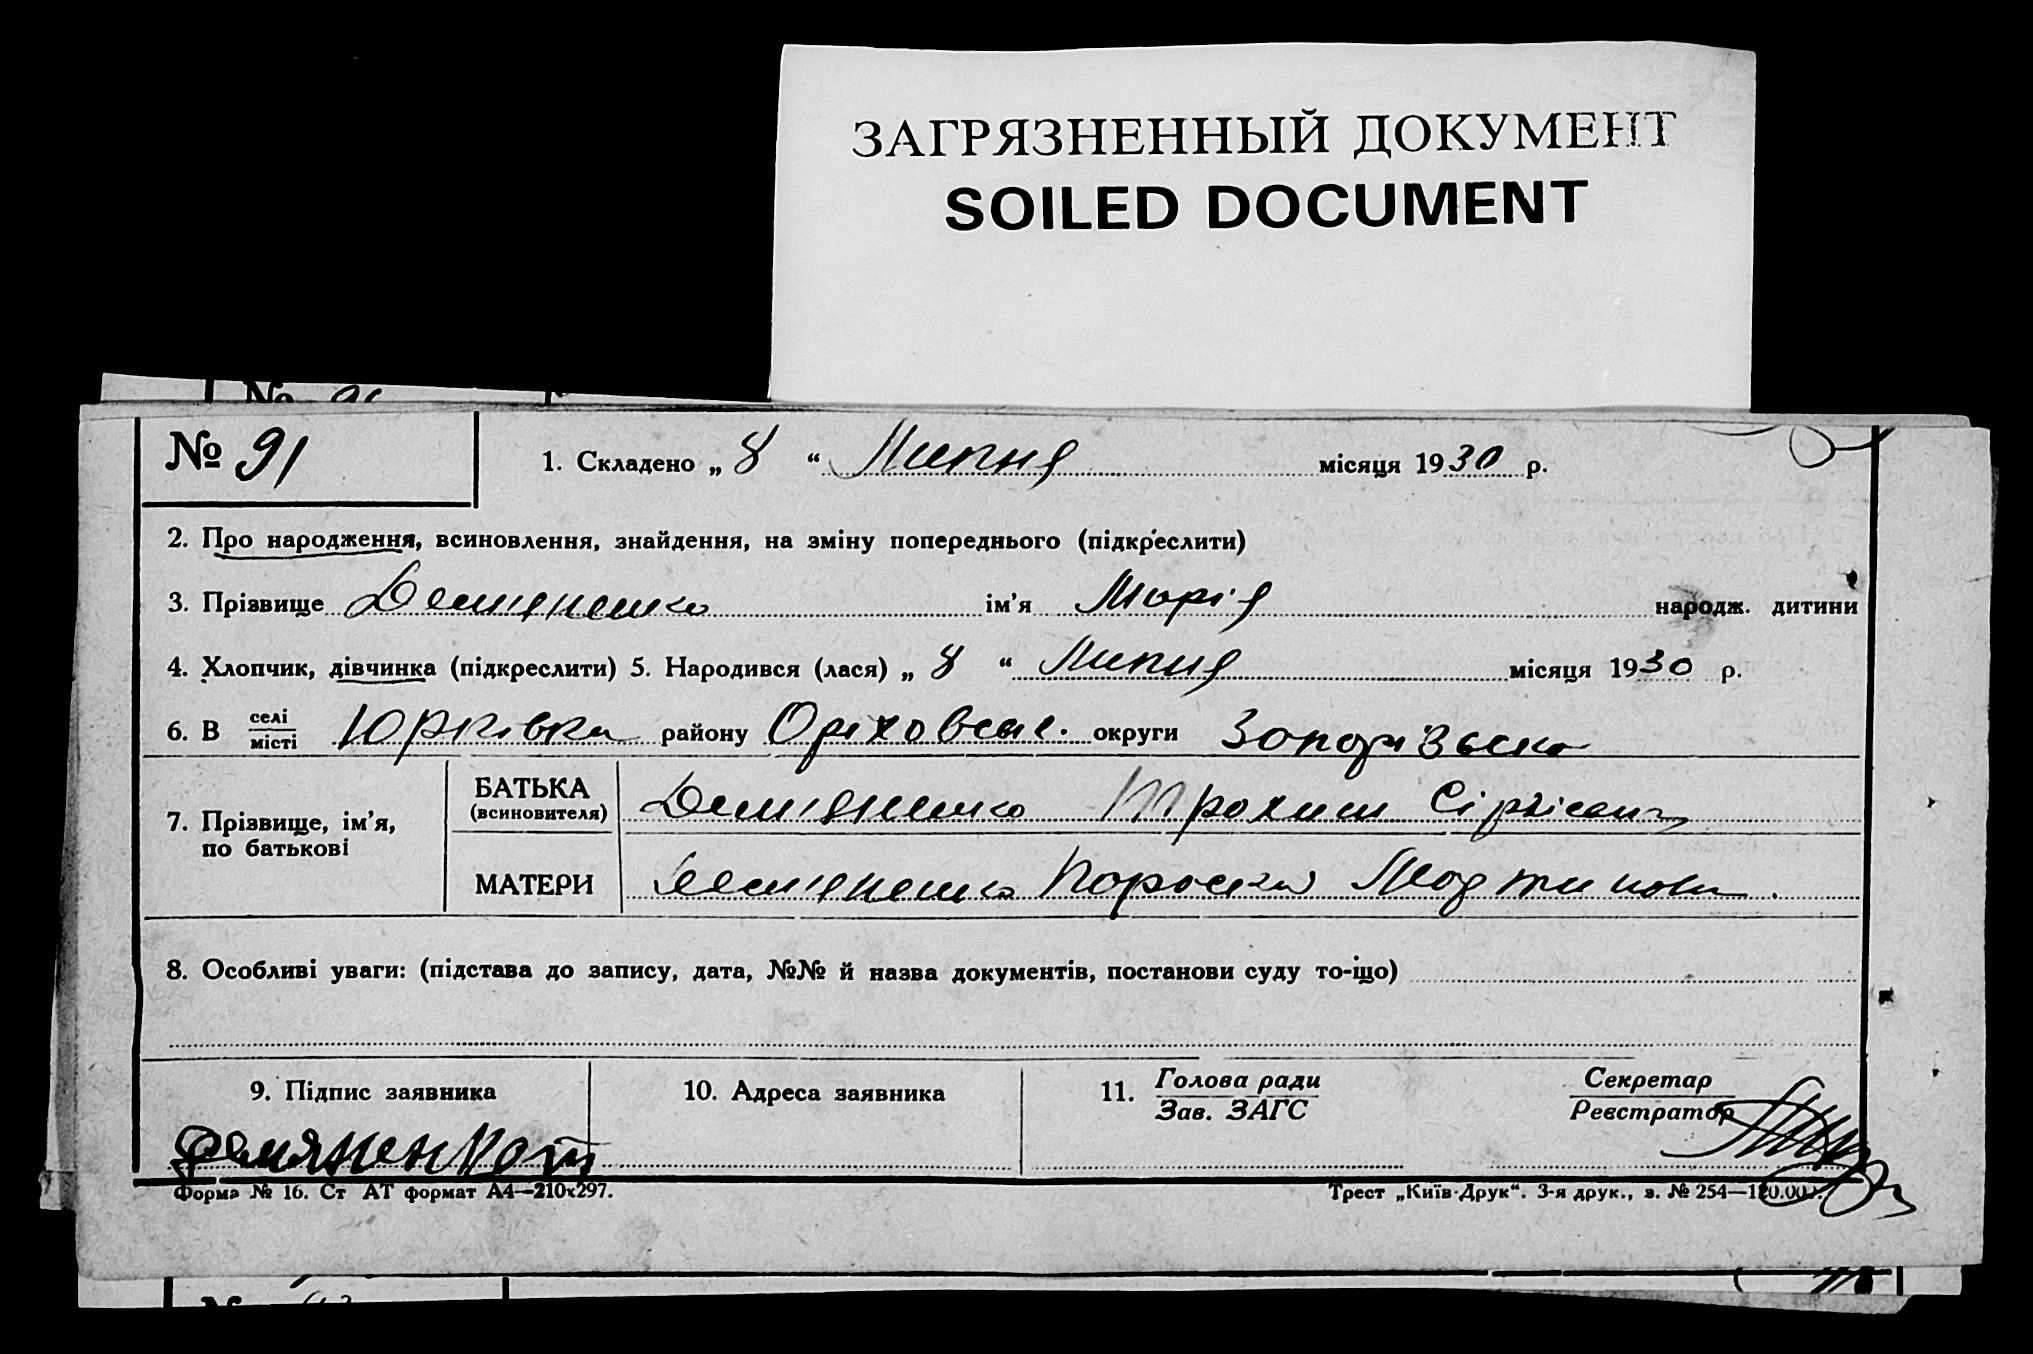 ЗАГРЯЗНЕННЫЙ ДОКУМЕНТ
SOILED DOCUMENT
№ 91
№ 91
1. Складено „ 8 “ Липня місяця 1930 р.
2. Про народження, всиновлення, знайдення, на зміну попереднього (підкреслити)
3. Прізвище Демяненко ім'я Марія народж. дитини
4. Хлопчик, дівчинка (підкреслити) 5. Народився (лася) „ 8 “ Липня місяця 1930 р.
6. В селі Юрківка району Оріховськ. округи Запорізько
місті
БАТЬКА
(всиновителя) Демяненко Трохим
7. Прізвище, ім'я,
по батькові
МАТЕРИ Демяненко
8. Особливі уваги: (підстава до запису, дата, №№ й назва документів, постанови суду то-що)
9. Підпис заявника 10. Адреса заявника 11. Голова ради Секретар
Зав. ЗАГС Реєстратор
Демяненко Т
Форма № 16. Ст АТ формат А4—210х297. Трест „Київ-Друк“. 3-я друк., з. № 254—120.000.